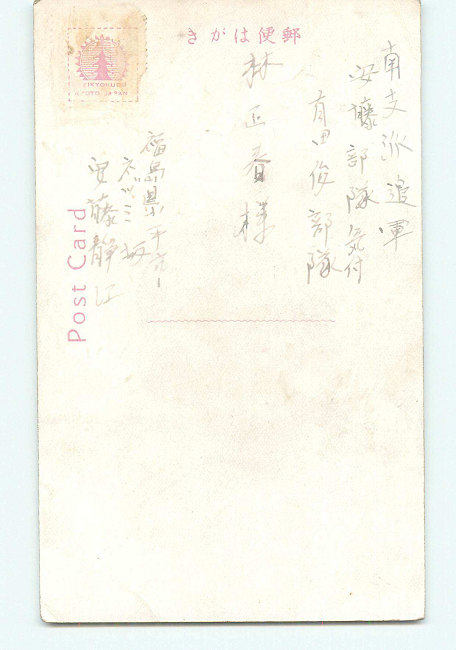 きがは便郵
南支派遣軍
安藤部隊気付
有田俊部隊
林正春様
福島県平市
ネズミ坂
安藤静江
Post Card
KYOTO JAPAN